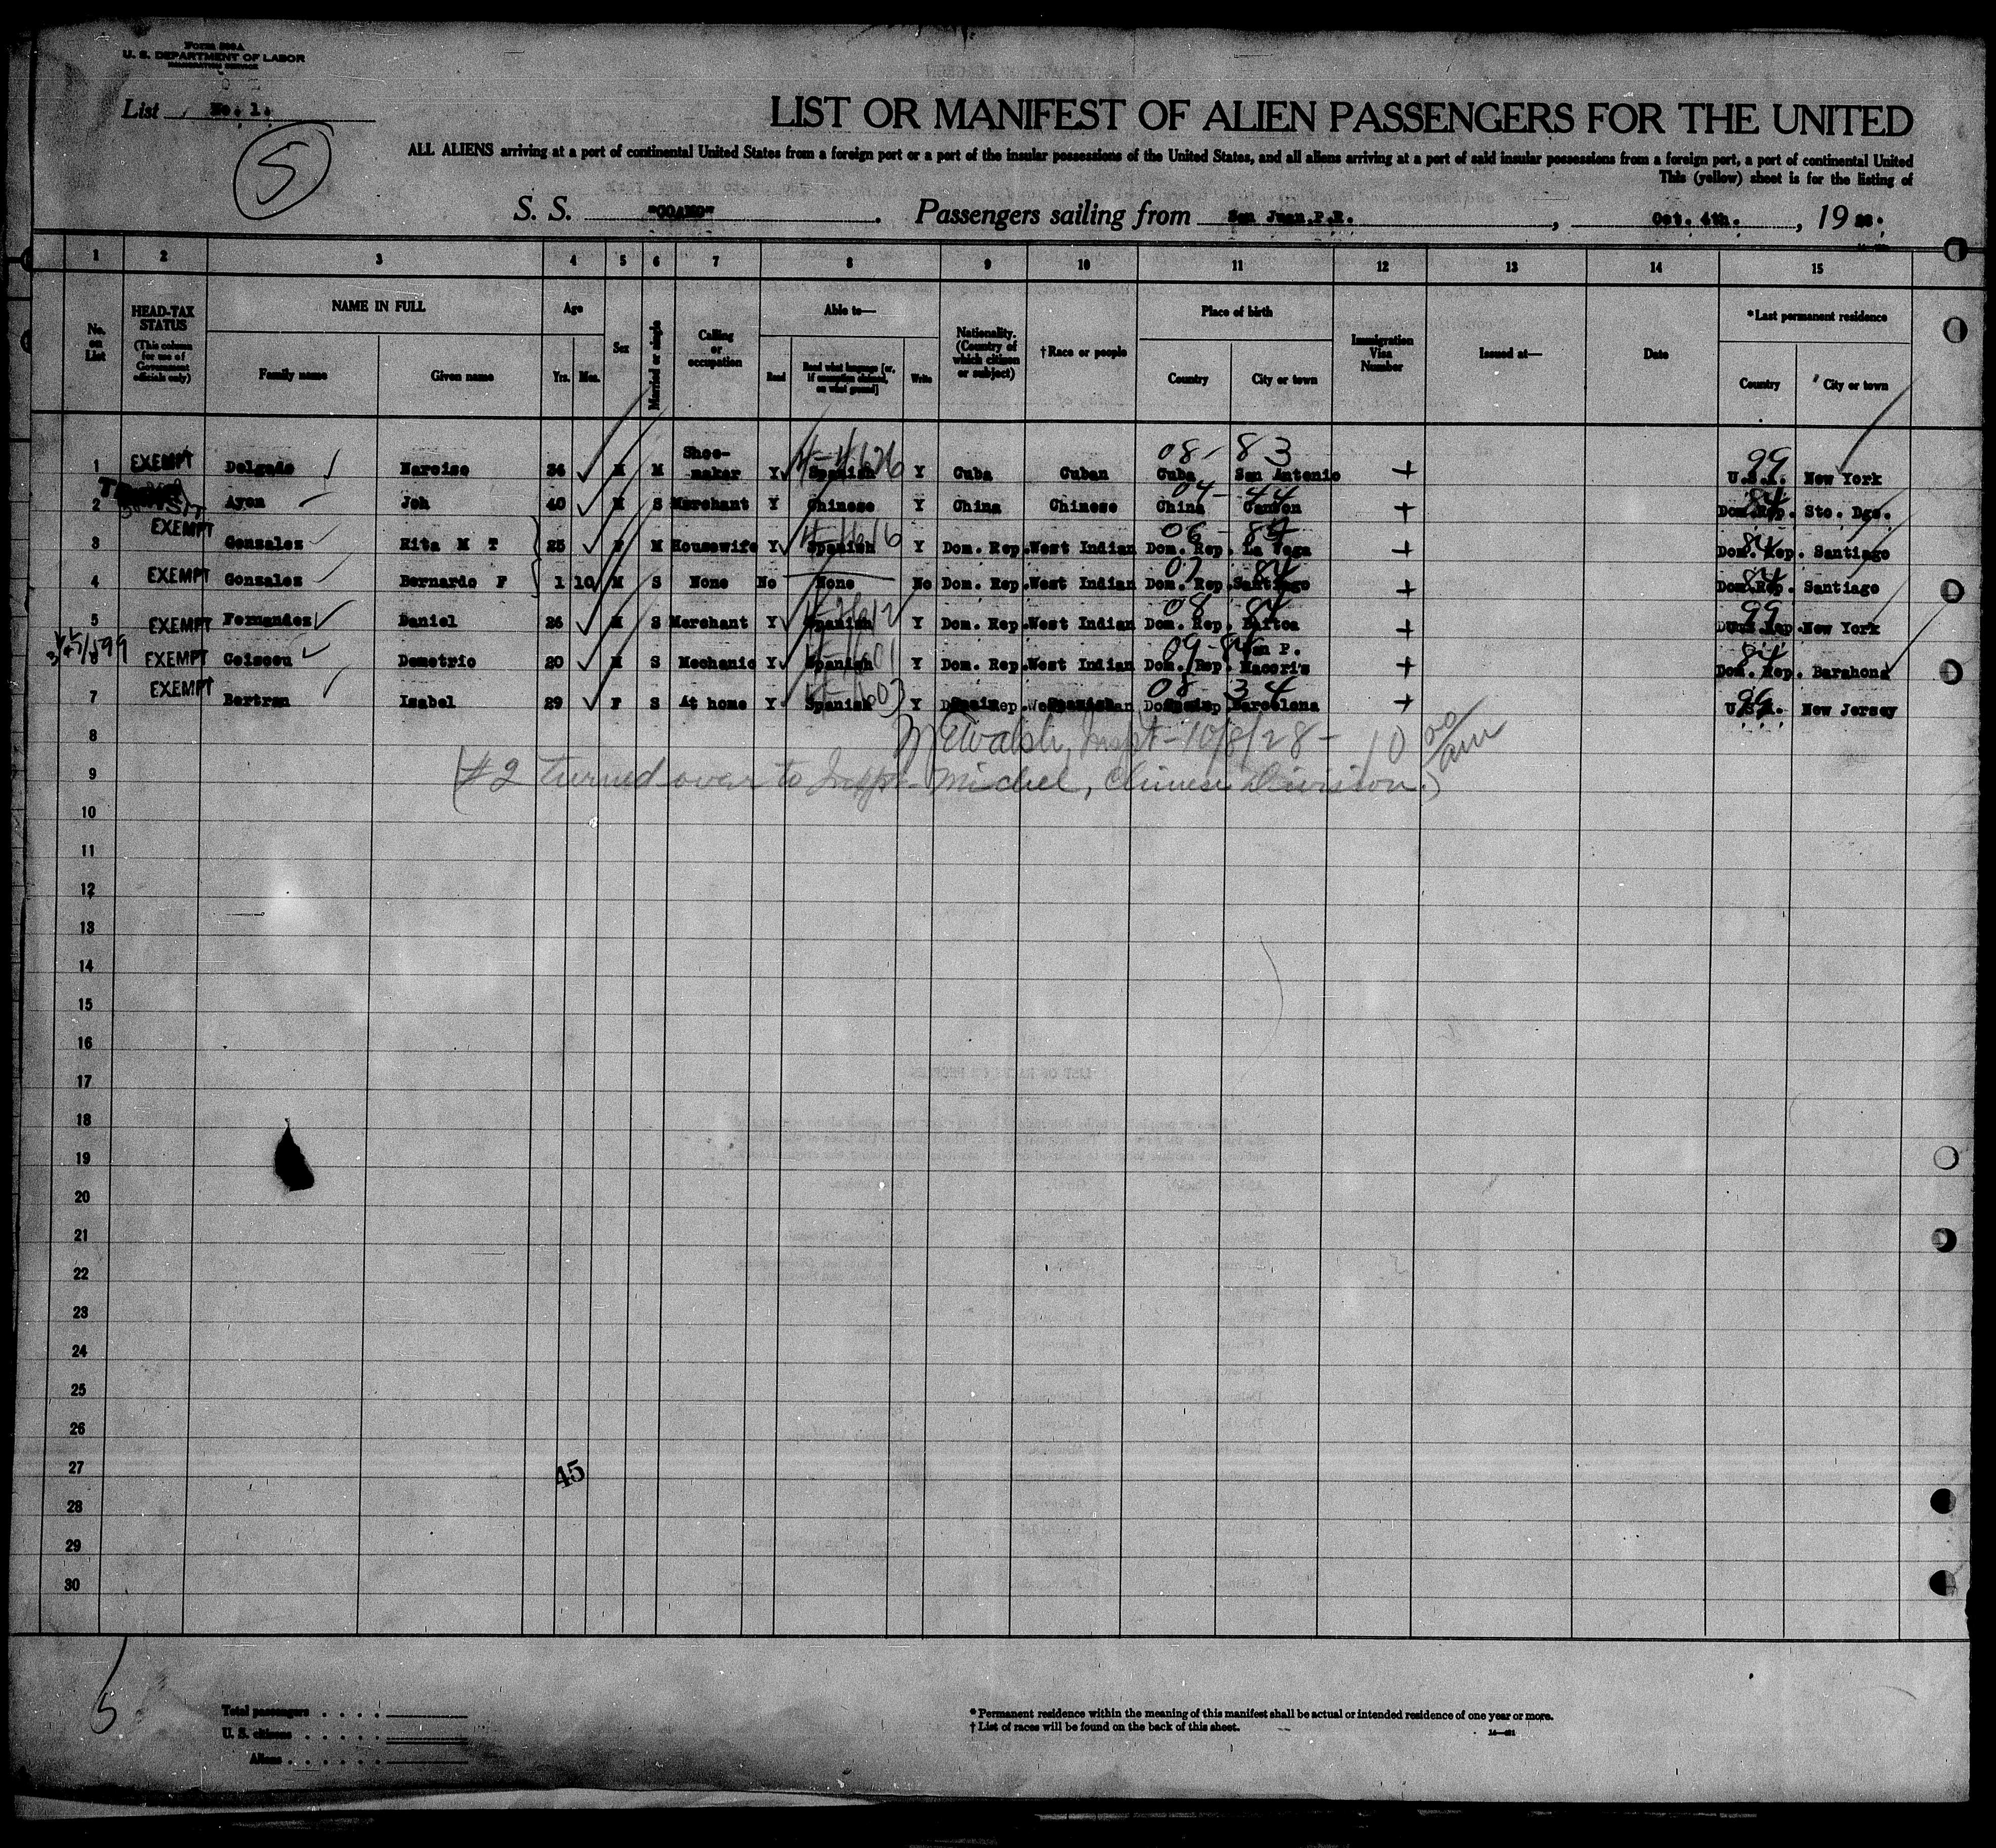 Form 500A
U. S. DEPARTMENT OF LABOR
IMMIGRATION SERVICE
List No. 1.
5
LIST OR MANIFEST OF ALIEN PASSENGERS FOR THE UNITED
ALL ALIENS arriving at a port of continental United States from a foreign port or a port of the insular possessions of the United States, and all aliens arriving at a port of said insular possessions from a foreign port, a port of continental United
This (yellow) sheet is for the listing of
S. S. "COAMO". Passengers sailing from San Juan.P.R., Oct. 4th., 19 28.
1 2 3 4 5 6 7 8 9 10 11 12 13 14 15
No. on List
HEAD-TAX STATUS (This column for use of Government officials only)
NAME IN FULL Family name Given name
Age Yrs. Mos.
Sex
Married or single
Calling or occupation
Able to— Read Read what language [or, if exemption claimed, on what ground] Write
Nationality. (Country of which citizen or subject)
†Race or people
Place of birth Country City or town
Immigration Visa Number
Issued at—
Date
*Last permanent residence Country City or town
1 EXEMPT Delgado Narciso 34 M M Shoe-maker Y Spanish Y Cuba Cuban Cuba San Antonio + U.S.A. New York
08 - 83 99
2 Ayon Joh 40 M S Merchant Y Chinese Y China Chinese China Canton + Dom.Rep. Sto. Dgo.
04 - 44 84
3 EXEMPT Gonzales Rita M T 25 F M Housewife Y Spanish Y Dom. Rep. West Indian Dom. Rep. La Vega + Dom. Rep. Santiago
06 - 84 84
4 EXEMPT Gonzales Bernardo F 1 10 M S None No None No Dom. Rep. West Indian Dom. Rep. Santiago + Dom.Rep. Santiago
07 84 84
5 EXEMPT Fernandez Daniel 26 M S Merchant Y Spanish Y Dom. Rep. West Indian Dom. Rep. + New York
08 84 99
6 EXEMPT Demetrio 20 M S Mechanic Y Spanish Y Dom. Rep. West Indian Dom. Rep. San P. Macoris + Dom. Rep. Barahona
09 - 84 84
7 EXEMPT Bertran Isabel 29 F S At home Y Spanish Y Spain Spanish Spain Barcelona + U.S.A. New Jersey
08 34
8
McWalsh, Inspt - 10/8/28 - 10 00/am
9
(#2 turned over to Inspt. Michel, Chinese Division.)
10
11
12
13
14
15
16
17
18
19
20
21
22
23
24
25
26
27
45
28
29
30
5
Total passengers
U. S. citizens
Aliens
* Permanent residence within the meaning of this manifest shall be actual or intended residence of one year or more.
† List of races will be found on the back of this sheet.